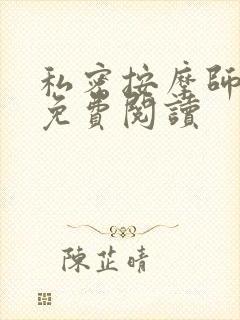 私密按摩師
免費閱讀
陳芷晴